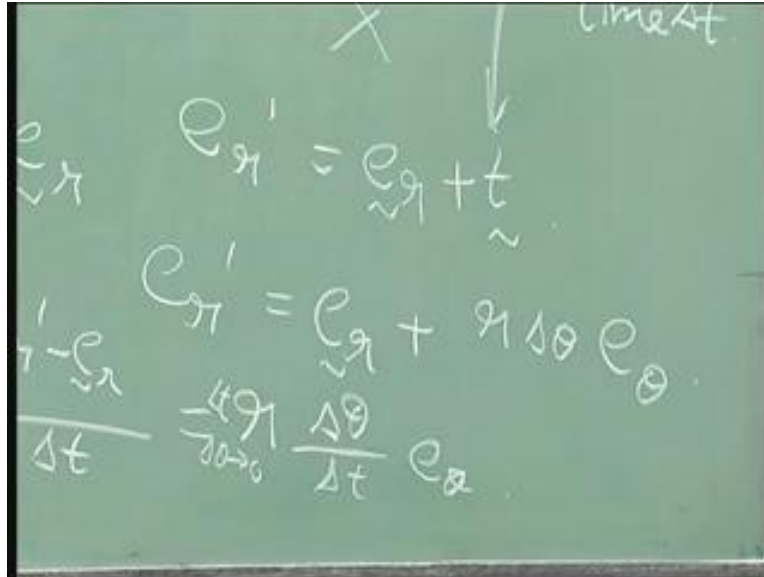 X time Δt
e_r e_r' = e_r + t
e_r' = e_r + r Δθ e_θ
r' - e_r
Δt r Δθ/Δt e_θ